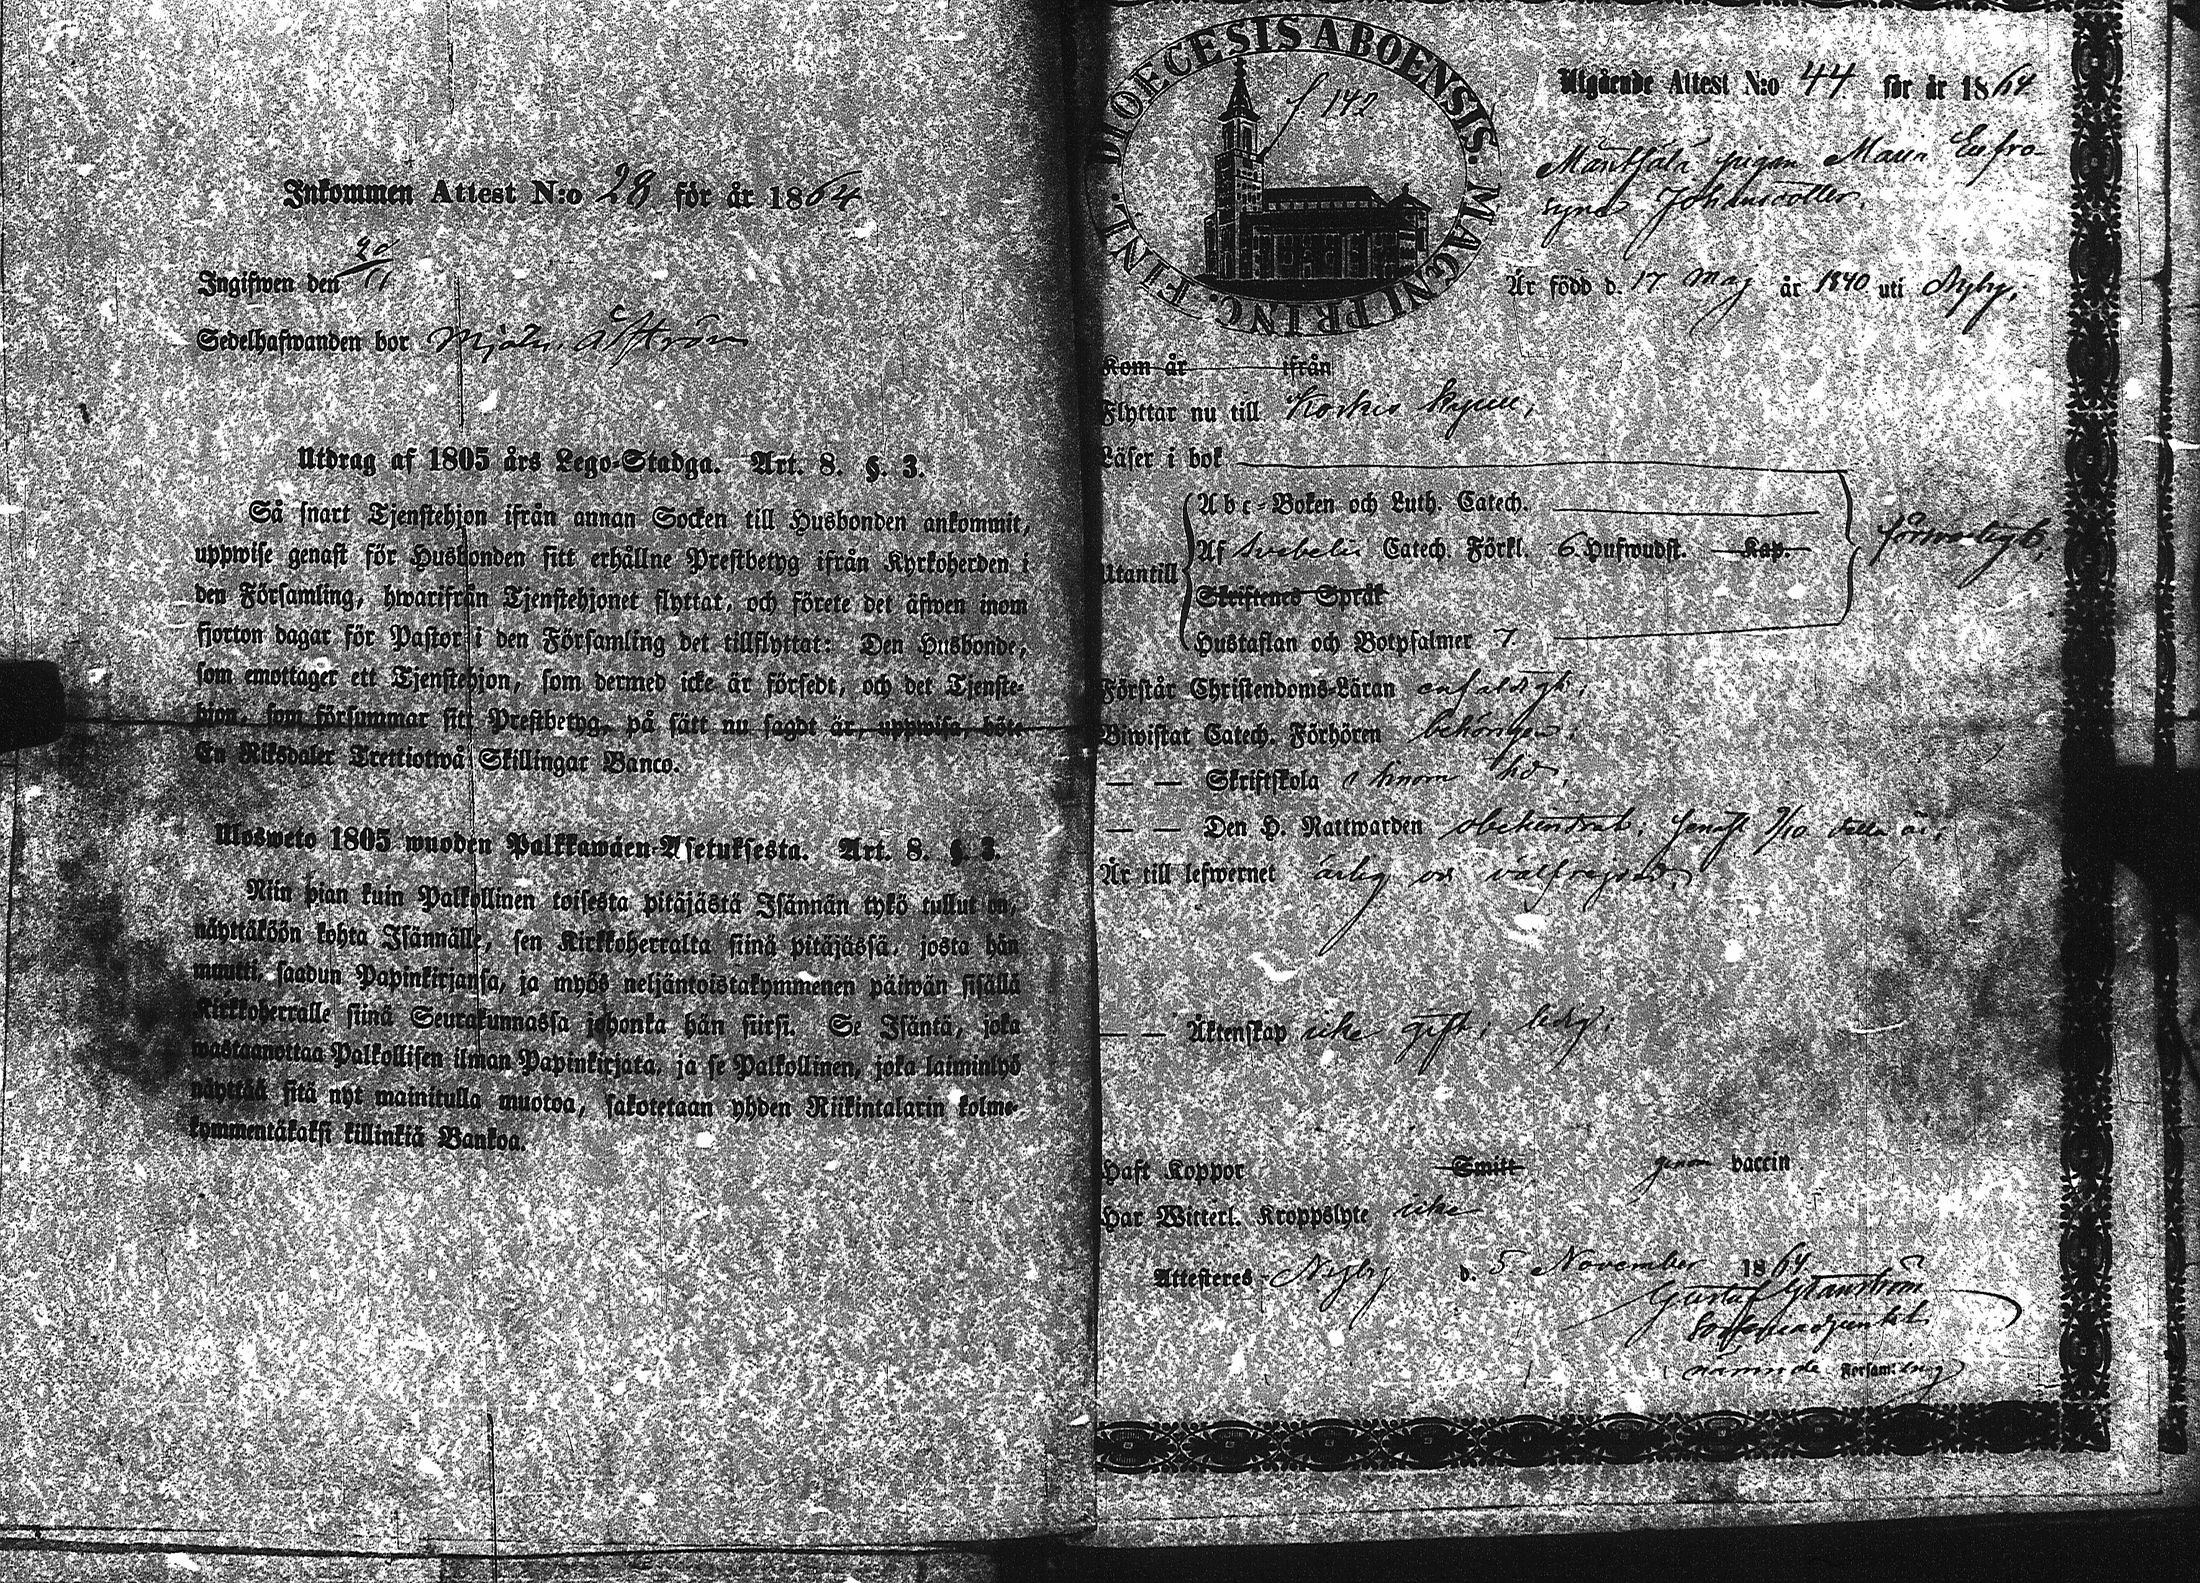 Inkommen Attest N:o 28 för år 1864
Ingifwen den 20/11
Sedelhafwanden bor Mjöln. Åström
Utdrag af 1805 års Lego-Stadga. Art. 8. §. 3.
Så snart Tjenstehjon ifrån annan Socken till Husbonden ankommit,
uppwise genast för Husbonden sitt erhållne Prestbetyg ifrån Kyrkoherden i
den Församling, hwarifrån Tjenstehjonet flyttat, och förete det äfwen inom
fjorton dagar för Pastor i den Församling det tillflyttat: Den Husbonde,
som emottager ett Tjenstehjon, som dermed icke är försedt, och det Tjenste-
hjon, som försummar sitt Prestbetyg, på sätt nu sagdt är, uppwisa, böte
En Riksdaler Trettiotwå Skillingar Banco.
Ulosweto 1805 wuoden Palkkawäen-Asetuksesta. Art. 8. §. 3.
Niin pian kuin Palkollinen toisesta pitäjästä Isännän tykö tullut on,
näyttäköön kohta Isännälle, sen Kirkkoherralta siinä pitäjässä, josta hän
muutti, saadun Papinkirjansa, ja myös neljäntoistakymmenen päiwän sisällä
Kirkkoherralle siinä Seurakunnassa johonka hän siirsi. Se Isäntä, joka
wastaanottaa Palkollisen ilman Papinkirjata, ja se Palkollinen, joka laiminlyö
näyttää sitä nyt mainitulla muotoa, sakotetaan yhden Riikintalarin kolme-
kymmentäkaksi killinkiä Bankoa.
DIOECESIS ABOENSIS. MAGNI PRINC. FINL.
f 142
Utgående Attest N:o 44 för år 1864
pigan Maria Eufro-
syna Johansdotter.
Är född d. 17 Maj år 1840 uti Nyby.
Kom år ifrån
Flyttar nu till Koskis
Läser i bok
Abc-Boken och Luth. Catech.
Utantill Af Svebelii Catech. Förkl. 6 Hufwudst. Kap. försvarligt;
Skriftenes Språk
Hustaflan och Botpsalmer 7.
Förstår Christendoms-Läran enfaldigt;
Biwistat Catech. Förhören behörigen;
— — Skriftskola
— — Den H. Nattwarden obehindrat; senast 9/10 detta år;
Är till lefwernet ärlig och välfrejdad.
— — Äktenskap icke gift; ledig;
Haft Koppor Smitt genom vaccin
Har Witterl. Kroppslyte icke
Attesteres Nyby d. 5 November 1864
Gustaf Granström
Sockneadjunkt
nämnde Församling